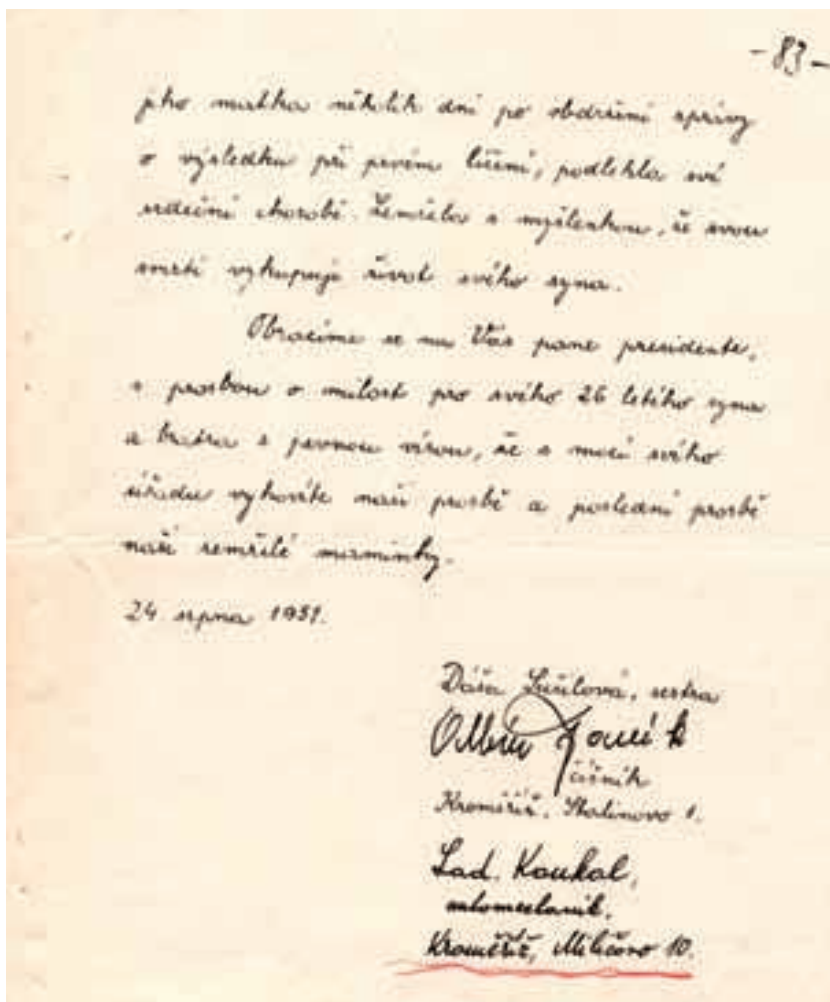 - 83 -
jeho matka několik dní po obdržení zprávy
o výsledku při prvém líčení, podlehla své
srdeční chorobě. Zemřela s myšlenkou, že svou
smrtí vykupuje život svého syna.
Obracíme se na Vás pane presidente,
s prosbou o milost pro svého 26 letého syna
a bratra s pevnou vírou, že z moci svého
úřadu vyhovíte naší prosbě a poslední prosbě
naší zemřelé maminky.
24. srpna 1951.
Dáša, sestra
číšník
Kroměříž, Stalinovo 1.
Lad. Koukal,
automechanik,
Kroměříž, Miličovo 10.